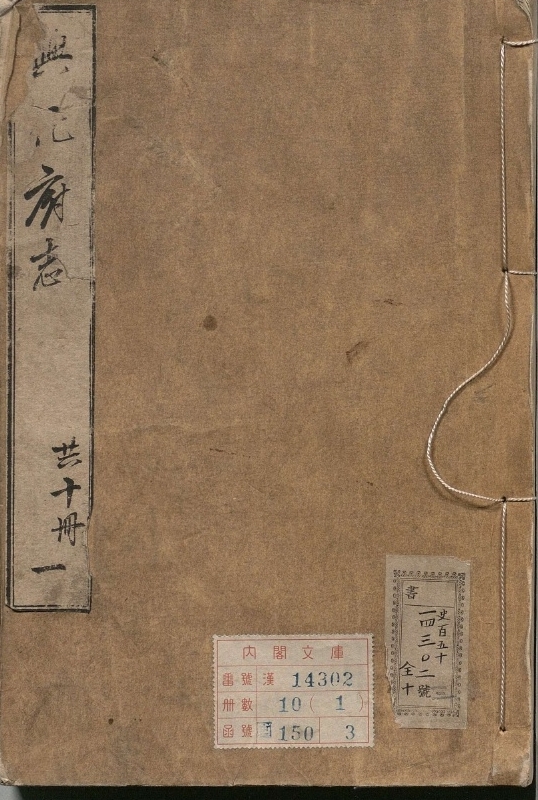 興化府志
共十冊 一
書
史百五十
一四三〇二號
全十
内閣文庫
番號 漢 14302
冊數 10 ( 1 )
函號 150 3